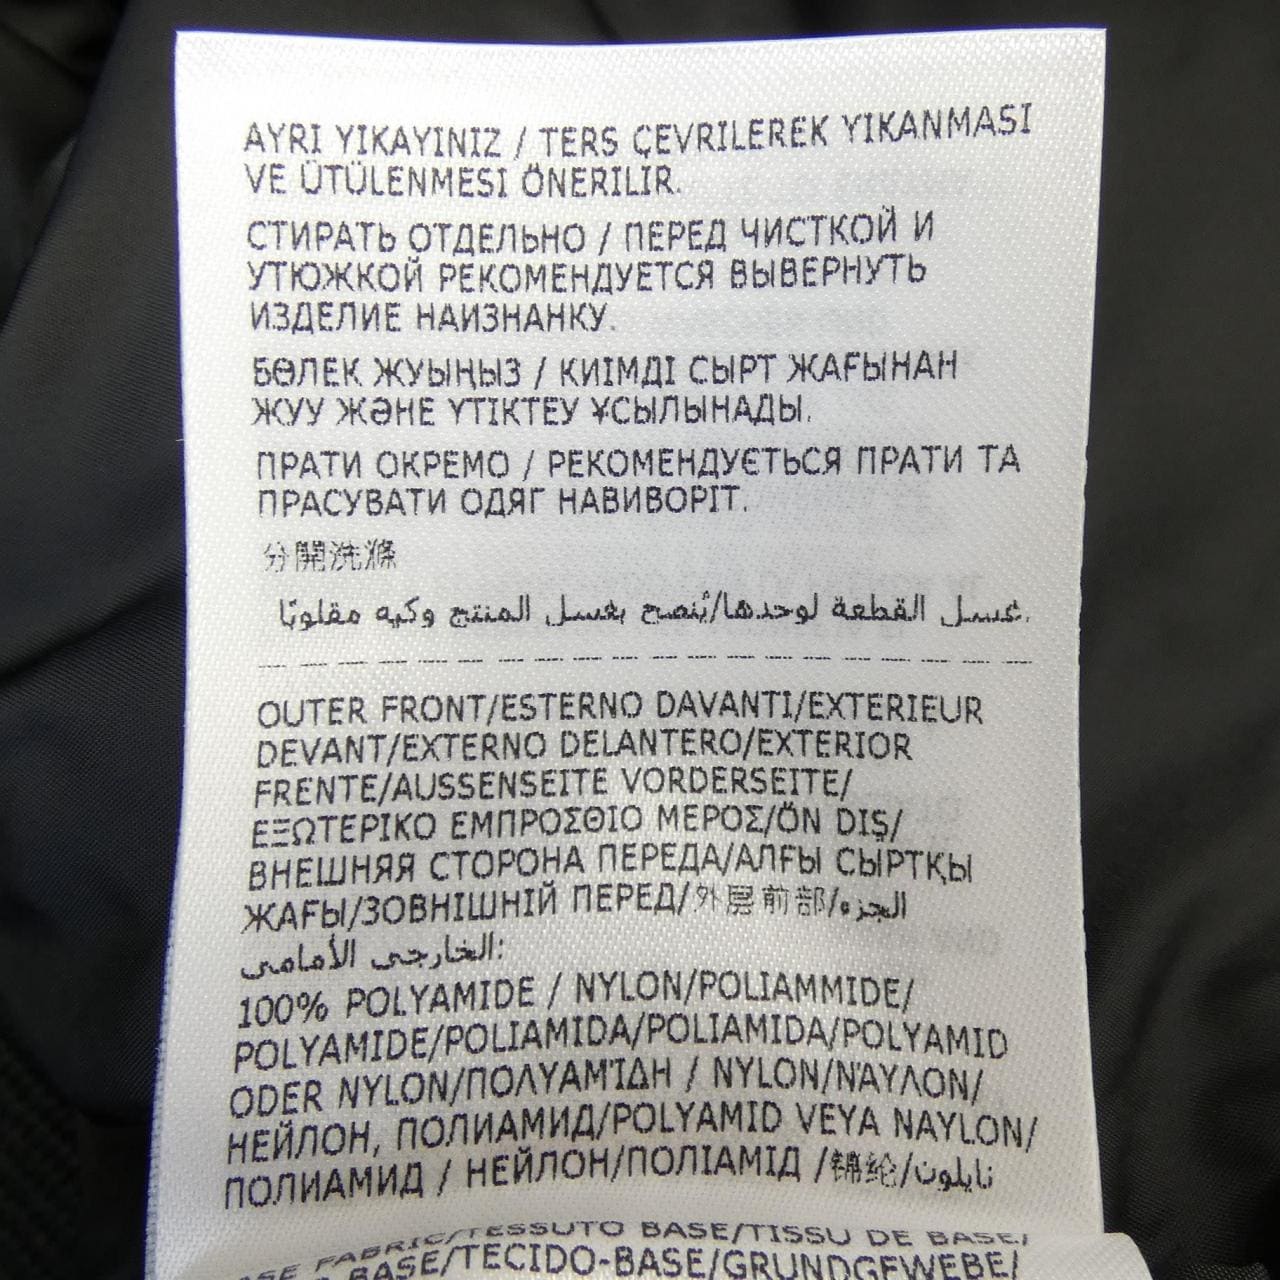 AYRI YIKAYINIZ / TERS ÇEVRILEREK YIKANMASI
VE ÜTÜLENMESI ÖNERILIR.
СТИРАТЬ ОТДЕЛЬНО / ПЕРЕД ЧИСТКОЙ И
УТЮЖКОЙ РЕКОМЕНДУЕТСЯ ВЫВЕРНУТЬ
ИЗДЕЛИЕ НАИЗНАНКУ.
БӨЛЕК ЖУЫҢЫЗ / КИІМДІ СЫРТ ЖАҒЫНАН
ЖУУ ЖӘНЕ ҮТІКТЕУ ҰСЫЛЫНАДЫ.
ПРАТИ ОКРЕМО / РЕКОМЕНДУЄТЬСЯ ПРАТИ ТА
ПРАСУВАТИ ОДЯГ НАВИВОРІТ.
分開洗滌
غسل القطعة لوحدها/يُنصح بغسل المنتج وكيه مقلوبًا.
OUTER FRONT/ESTERNO DAVANTI/EXTERIEUR
DEVANT/EXTERNO DELANTERO/EXTERIOR
FRENTE/AUSSENSEITE VORDERSEITE/
ΕΞΩΤΕΡΙΚΟ ΕΜΠΡΟΣΘΙΟ ΜΕΡΟΣ/ÖN DIŞ/
ВНЕШНЯЯ СТОРОНА ПЕРЕДА/АЛҒЫ СЫРТҚЫ
ЖАҒЫ/ЗОВНІШНІЙ ПЕРЕД/外层前部/الجزء
الخارجي الأمامي:
100% POLYAMIDE / NYLON/POLIAMMIDE/
POLYAMIDE/POLIAMIDA/POLIAMIDA/POLYAMID
ODER NYLON/ΠΟΛΥΑΜΊΔΗ / NYLON/ΝΆΥΛΟΝ/
НЕЙЛОН, ПОЛИАМИД/POLYAMID VEYA NAYLON/
ПОЛИАМИД / НЕЙЛОН/ПОЛІАМІД /锦纶/نايلون
FABRIC/TESSUTO BASE/TISSU DE BASE/
BASE/TECIDO-BASE/GRUNDGEWEBE/